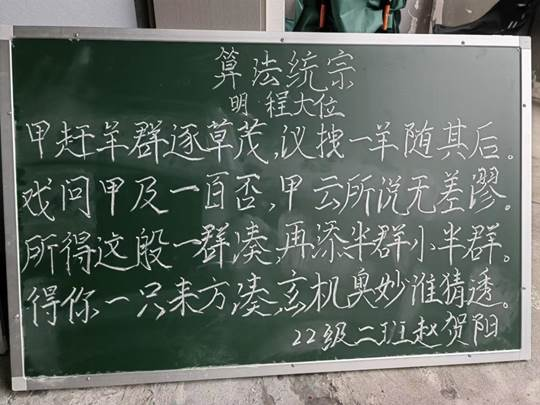 算法统宗
明 程大位
甲赶羊群逐草茂,议拽一羊随其后。
戏问甲及一百否,甲云所说无差谬。
所得这般一群凑,再添半群小半群。
得你一只来方凑玄机奥妙谁猜透。
22级二班赵贺阳